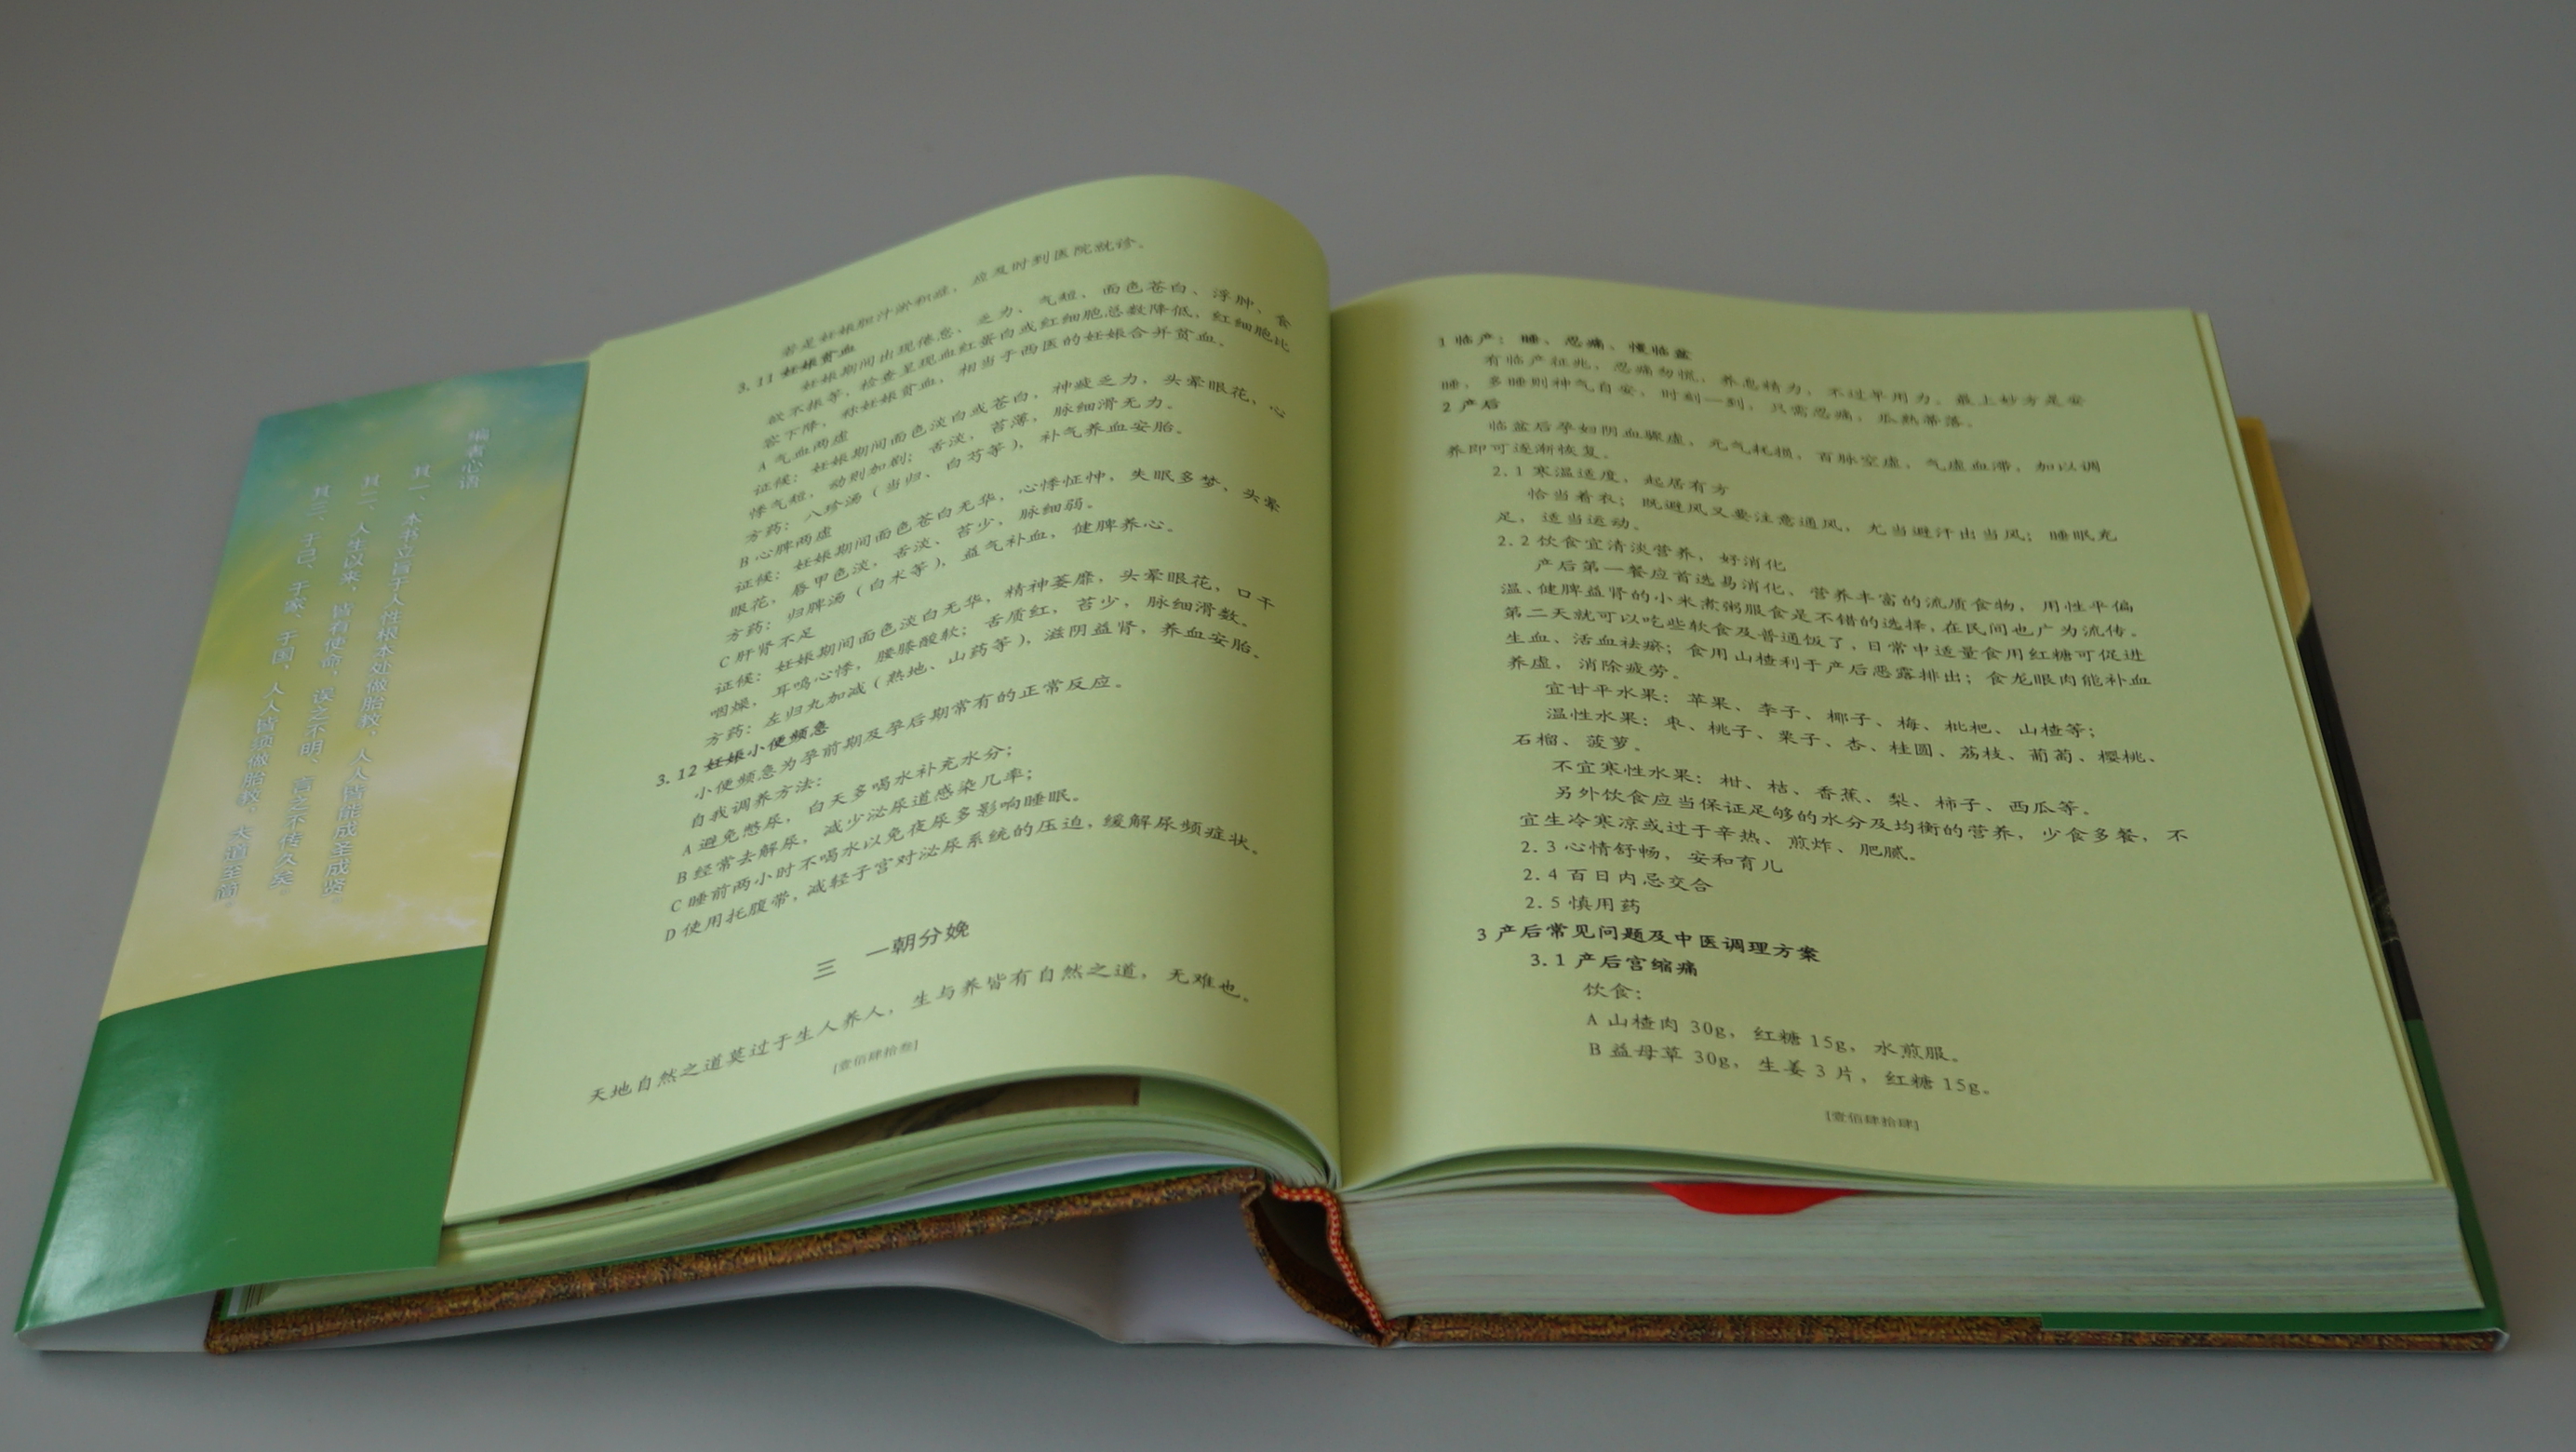 编者心语
其一、本书立旨于人性根本处做胎教，人人皆能成圣成贤。
其二、人生以来，皆有使命，误之不明，言之不传久矣。
其三、于己、于家、于国，人人皆须做胎教，大道至简。
若是妊娠胆汁淤积症，应及时到医院就诊。
3.11 妊娠贫血
妊娠期间出现倦怠、乏力、气短、面色苍白、浮肿、食
欲不振等，检查呈现血红蛋白或红细胞总数降低，红细胞比
容下降，称妊娠贫血，相当于西医的妊娠合并贫血。
A 气血两虚
证候：妊娠期间面色淡白或苍白，神疲乏力，头晕眼花，心
悸气短，动则加剧；舌淡，苔薄，脉细滑无力。
方药：八珍汤（当归、白芍等），补气养血安胎。
B 心脾两虚
证候：妊娠期间面色苍白无华，心悸怔忡，失眠多梦，头晕
眼花，唇甲色淡，舌淡、苔少，脉细弱。
方药：归脾汤（白术等），益气补血，健脾养心。
C 肝肾不足
证候：妊娠期间面色淡白无华，精神萎靡，头晕眼花，口干
咽燥，耳鸣心悸，腰膝酸软；舌质红，苔少，脉细滑数。
方药：左归丸加减（熟地、山药等），滋阴益肾，养血安胎。
3.12 妊娠小便频急
小便频急为孕前期及孕后期常有的正常反应。
自我调养方法：
A 避免憋尿，白天多喝水补充水分；
B 经常去解尿，减少泌尿道感染几率；
C 睡前两小时不喝水以免夜尿多影响睡眠。
D 使用托腹带，减轻子宫对泌尿系统的压迫，缓解尿频症状。
三 一朝分娩
天地自然之道莫过于生人养人，生与养皆有自然之道，无难也。
[壹佰肆拾叁]
1 临产：睡、忍痛、慢临盆
有临产征兆，忍痛勿慌，养息精力，不过早用力。最上妙方是安
睡，多睡则神气自安，时刻一到，只需忍痛，瓜熟蒂落。
2 产后
临盆后孕妇阴血骤虚，元气耗损，百脉空虚，气虚血滞，加以调
养即可逐渐恢复。
2.1 寒温适度，起居有方
恰当着衣；既避风又要注意通风，尤当避汗出当风；睡眠充
足，适当运动。
2.2 饮食宜清淡营养，好消化
产后第一餐应首选易消化、营养丰富的流质食物，用性平偏
温、健脾益肾的小米煮粥服食是不错的选择，在民间也广为流传。
第二天就可以吃些软食及普通饭了，日常中适量食用红糖可促进
生血、活血祛瘀；食用山楂利于产后恶露排出；食龙眼肉能补血
养虚，消除疲劳。
宜甘平水果：苹果、李子、椰子、梅、枇杷、山楂等；
温性水果：枣、桃子、栗子、杏、桂圆、荔枝、葡萄、樱桃、
石榴、菠萝。
不宜寒性水果：柑、桔、香蕉、梨、柿子、西瓜等。
另外饮食应当保证足够的水分及均衡的营养，少食多餐，不
宜生冷寒凉或过于辛热、煎炸、肥腻。
2.3 心情舒畅，安和育儿
2.4 百日内忌交合
2.5 慎用药
3 产后常见问题及中医调理方案
3.1 产后宫缩痛
饮食：
A 山楂肉 30g，红糖 15g，水煎服。
B 益母草 30g，生姜 3 片，红糖 15g。
[壹佰肆拾肆]